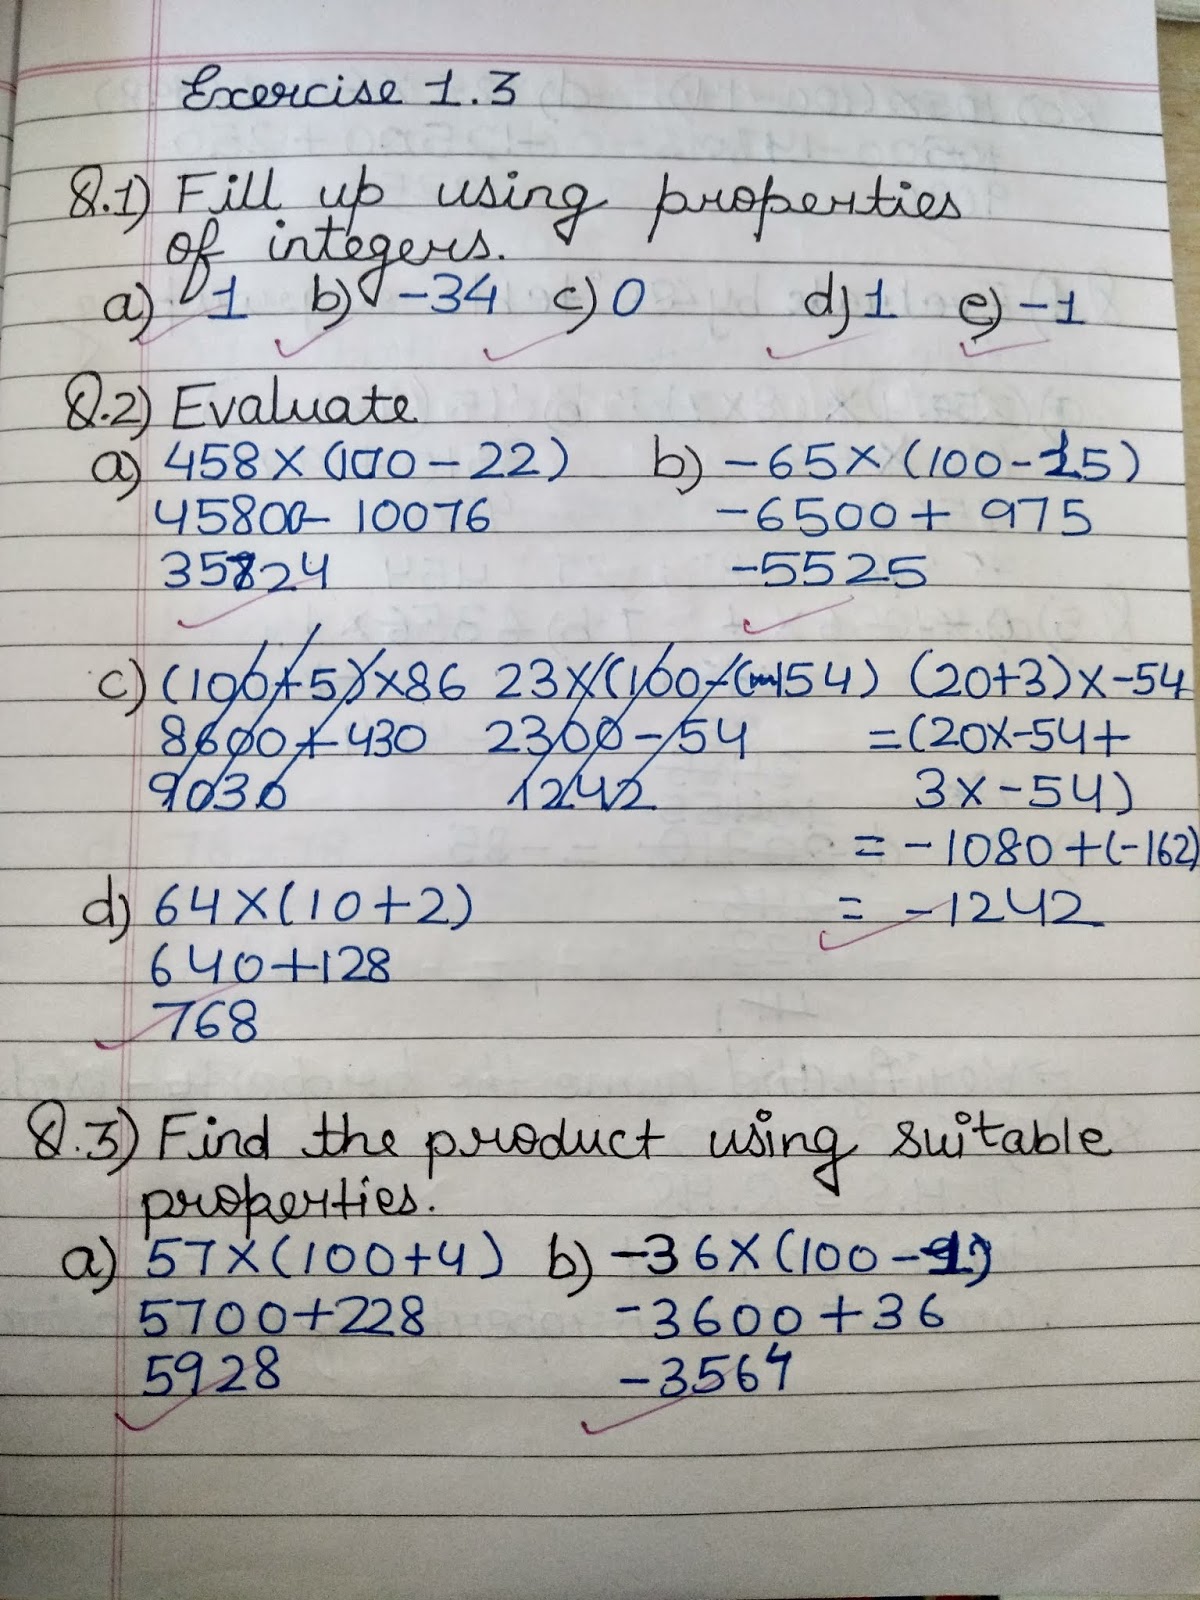 Exercise 1.3
Q.1) Fill up using properties
of integers.
a) 1 b) -34 c) 0 d) 1 e) -1
Q.2) Evaluate
a) 458 × (100 - 22) b) -65 × (100 - 15)
45800 - 10076 -6500 + 975
35724 -5525
c) (100+5) × 86 23 × (100 - 154) (20+3) × -54
8600 + 430 2300 - 54 = (20×-54 +
9030 1242 3 × -54)
= -1080 + (-162)
d) 64 × (10 + 2) = -1242
640 + 128
768
Q.3) Find the product using suitable
properties.
a) 57 × (100 + 4) b) -36 × (100 - 1)
5700 + 228 -3600 + 36
5928 -3564